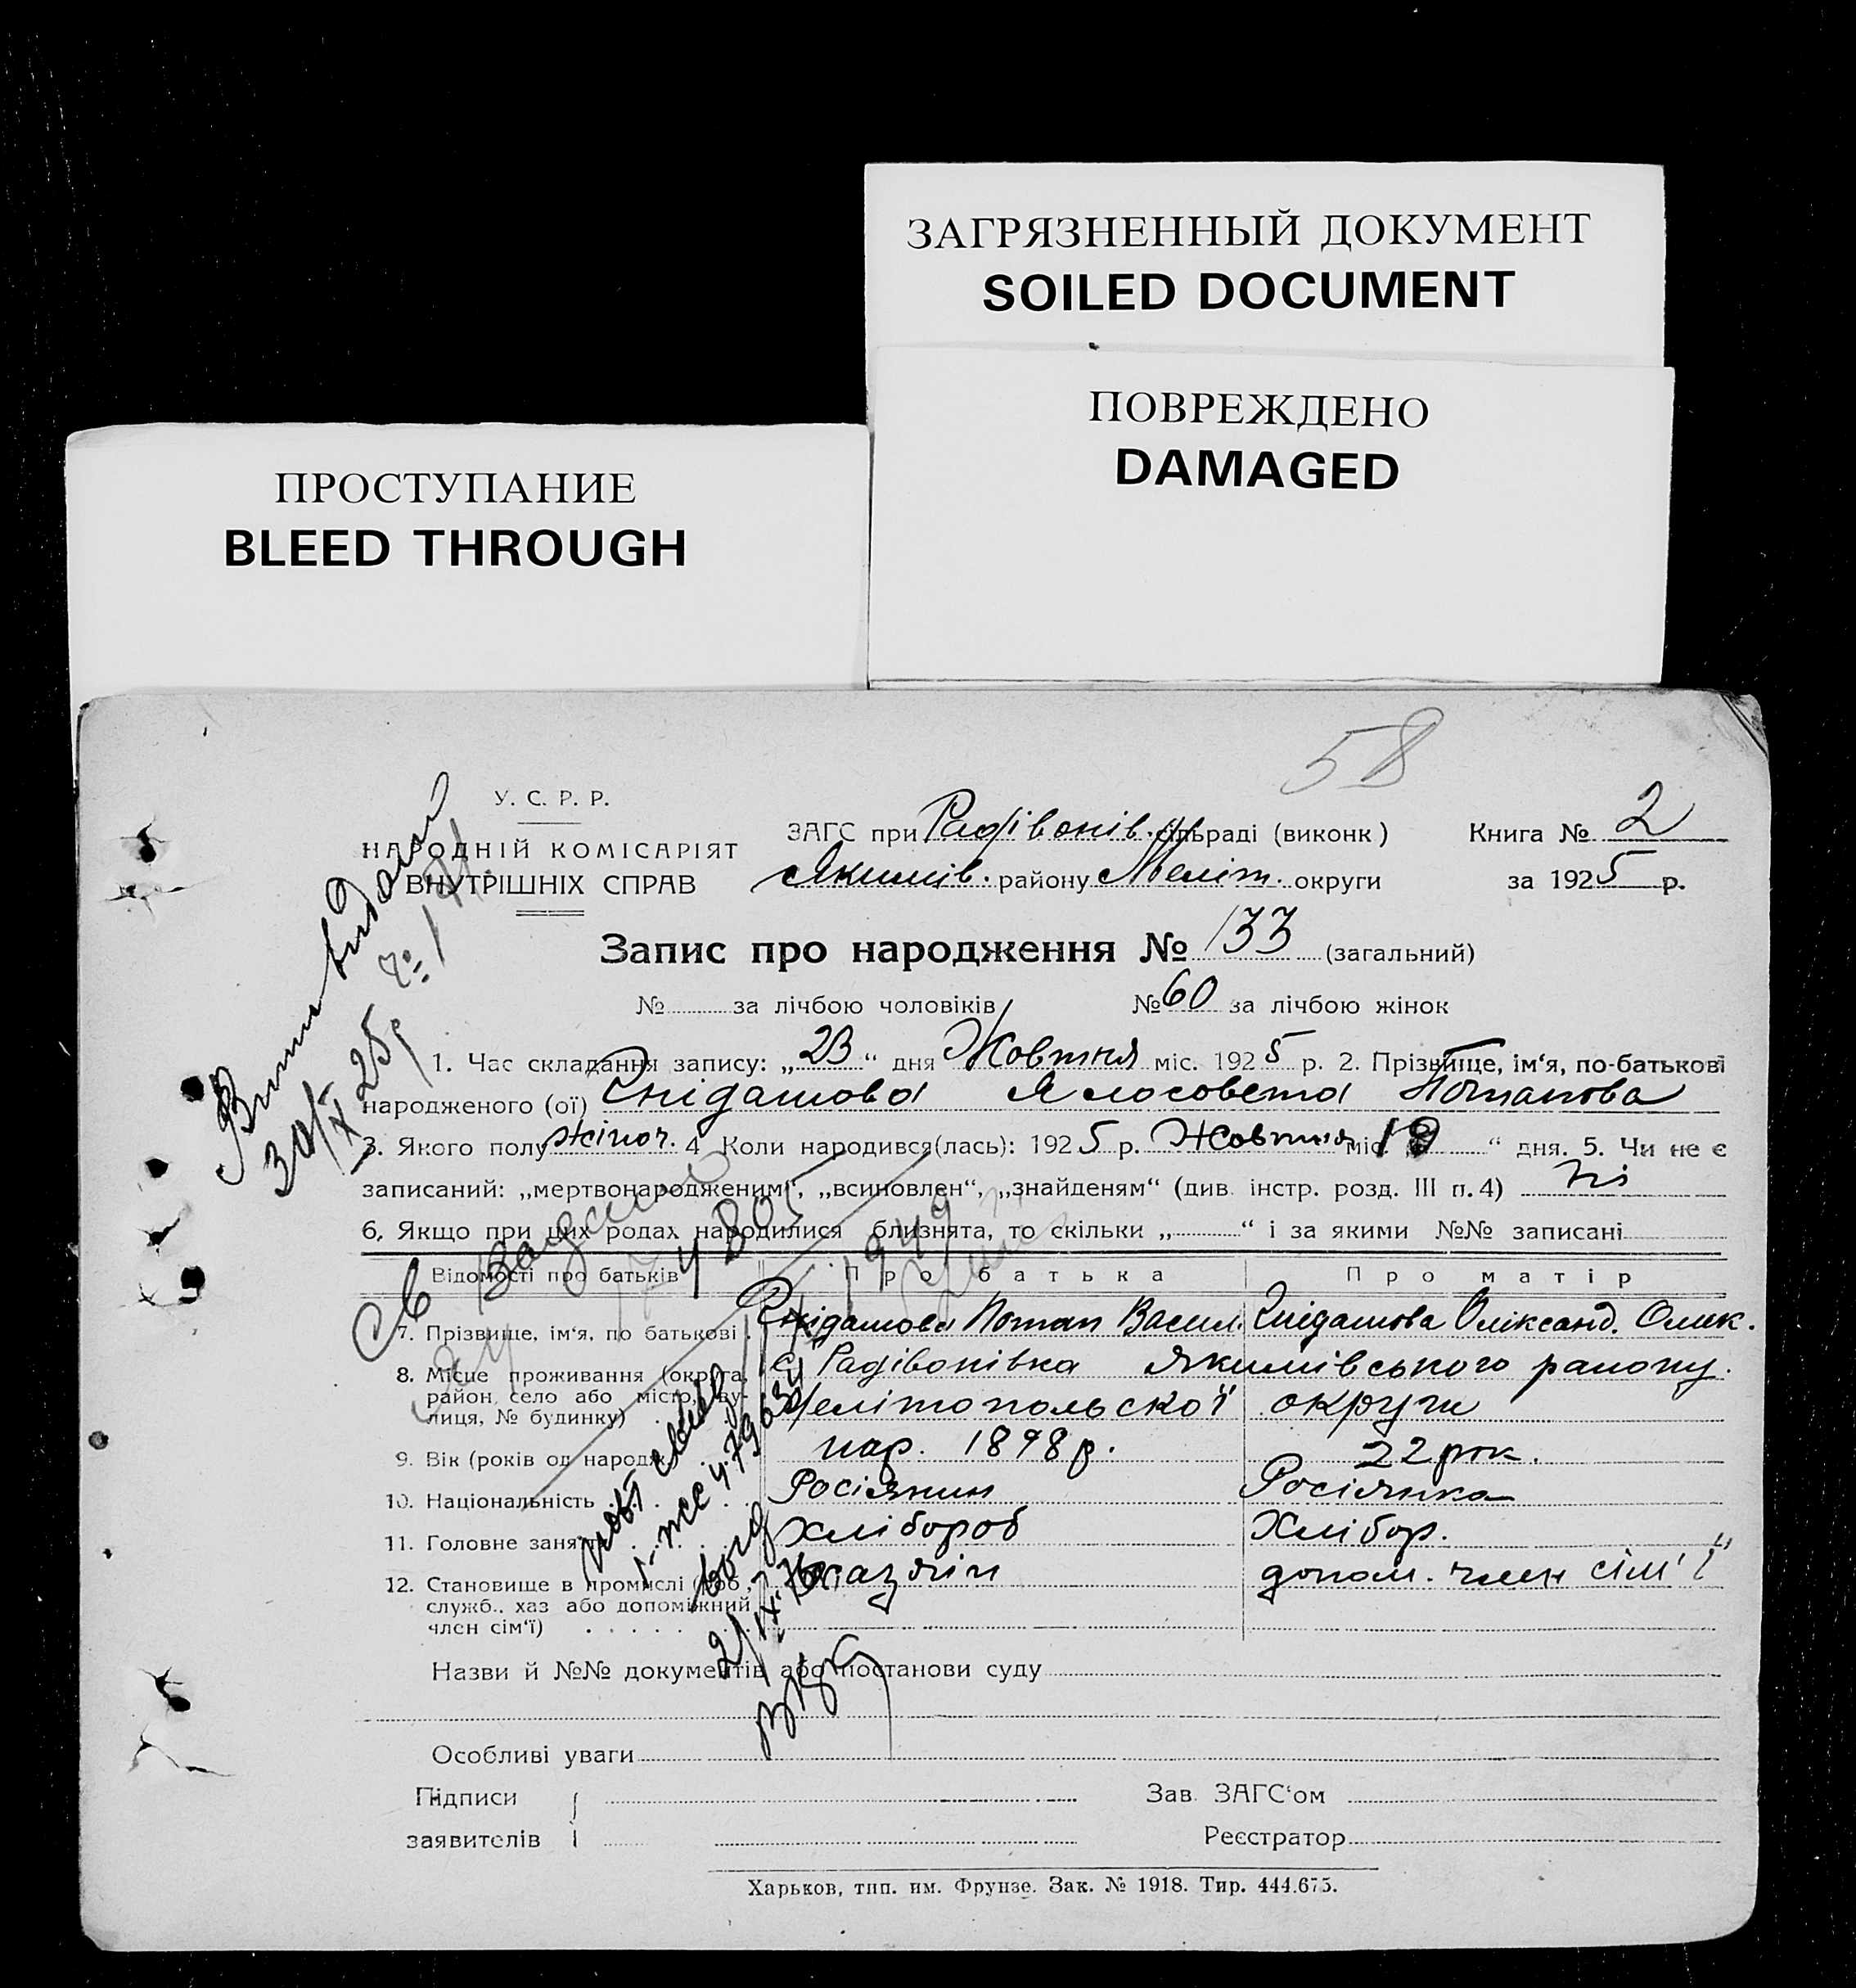 ЗАГРЯЗНЕННЫЙ ДОКУМЕНТ
SOILED DOCUMENT
ПОВРЕЖДЕНО
DAMAGED
ПРОСТУПАНИЕ
BLEED THROUGH
58
У. С. Р. Р.
НАРОДНІЙ КОМІСАРІЯТ
ВНУТРІШНІХ СПРАВ
ЗАГС при Радівонів. сільраді (виконк) Книга № 2
Якимів. району Меліт. округи за 1925 р.
Запис про народження № 133 (загальний)
№ за лічбою чоловіків № 60 за лічбою жінок
1. Час складання запису: „23“ дня Жовтня міс. 1925 р. 2. Прізвище, ім‘я, по-батькові
народженого (ої) Гнідашова Ялосовета Потапова
3. Якого полу жіноч. 4 Коли народився(лась): 1925 р. Жовтня міс. 19 “ дня. 5. Чи не є
записаний: „мертвонародженим“, „всиновлен“, „знайденям“ (див. інстр. розд. III п. 4) ні
6. Якщо при цих родах народилися близнята, то скільки „ “ і за якими №№ записані
Відомості про батьків Про батька Про матір
7. Прізвище, ім‘я, по батькові Гнідашова Потап Васил. Гнідашова Оліксанд. Олек.
8. Місце проживання (округа, с. Радівонівка Якимівського району.
район, село або місто, ву-
лиця, № будинку) Мелітопольської округи
9. Вік (років од народж. нар. 1898 р. 22 рок.
10. Національність Росіянин Росіянка
11. Головне заняття Хлібороб Хлібор.
12. Становище в промислі (роб., Хазяїн допом. член сім'ї
служб., хаз або допоміжний
член сім‘ї)
Назви й №№ документів або постанови суду
Особливі уваги
Підписи Зав. ЗАГС‘ом
заявителів Реєстратор
Харьков, тип. им. Фрунзе. Зак. № 1918. Тир. 444.675.
30/IX 25р
1949